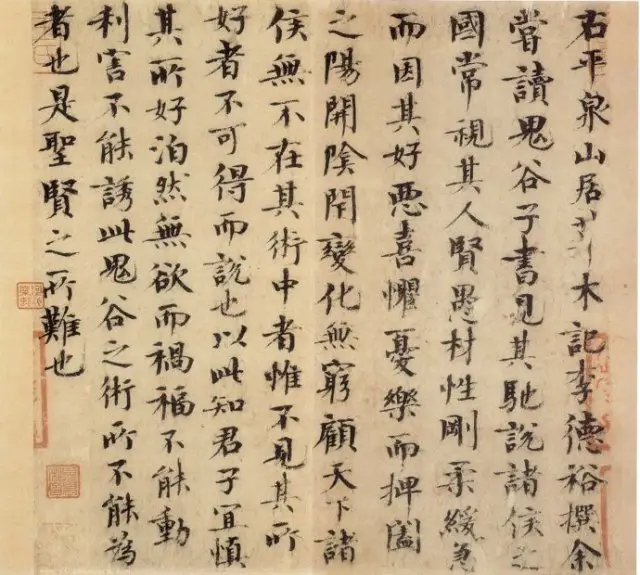 右平泉山居草木記李德裕撰余
嘗讀鬼谷子書見其馳說諸侯之
國常視其人賢愚材性剛柔緩急
而因其好惡喜懼憂樂而捭闔
之陽開陰閇變化無窮顧天下諸
侯無不在其術中者惟不見其所
好者不可得而說也以此知君子宜慎
其所好泊然無欲而禍福不能動
利害不能誘此鬼谷之術所不能為
者也是聖賢之所難也